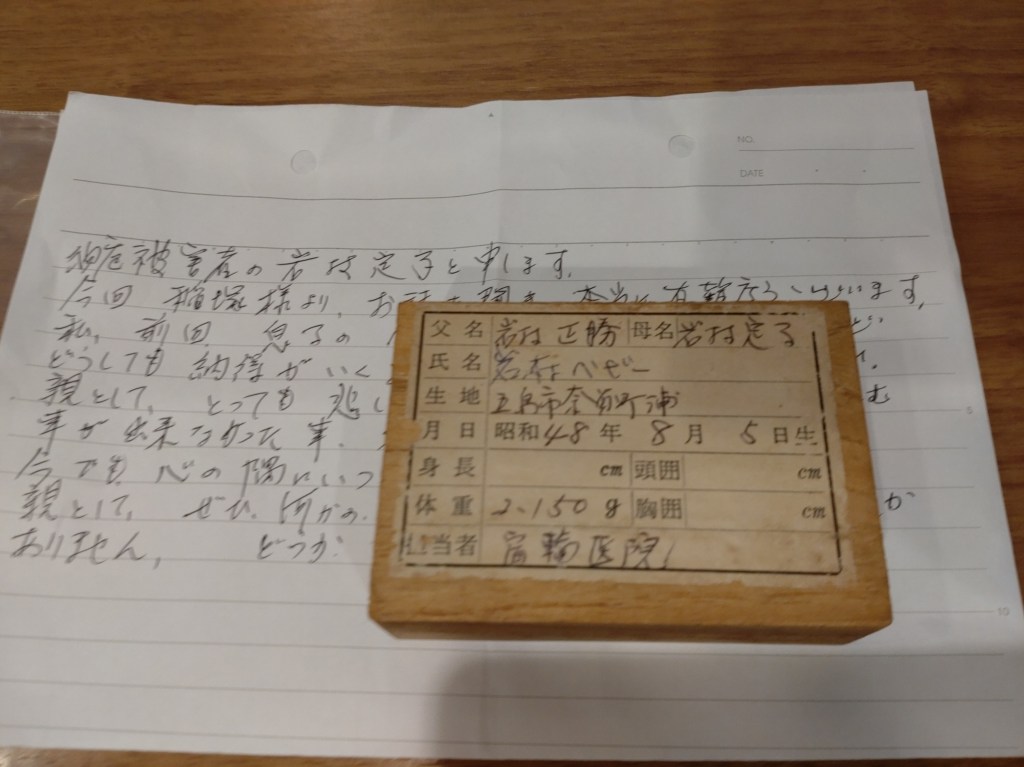 NO.
DATE
被害者の岩村定子と申します。
今回 稲塚様より、お 本当に有難うございます。
私、前回、息子の
どうしても納得がいく
親として、とっても悲し む
事が出来なかった事、
今でも心の隅にいつ
親として、ぜひ、何かの、 か
ありません、 どうか
5
10
父名 岩村正勝 母名 岩村定子
氏名 岩村ベビー
生地 五島市奈留町浦
月日 昭和48年8月5日生
身長 cm 頭囲 cm
体重 2.150g 胸囲 cm
担当者 医院